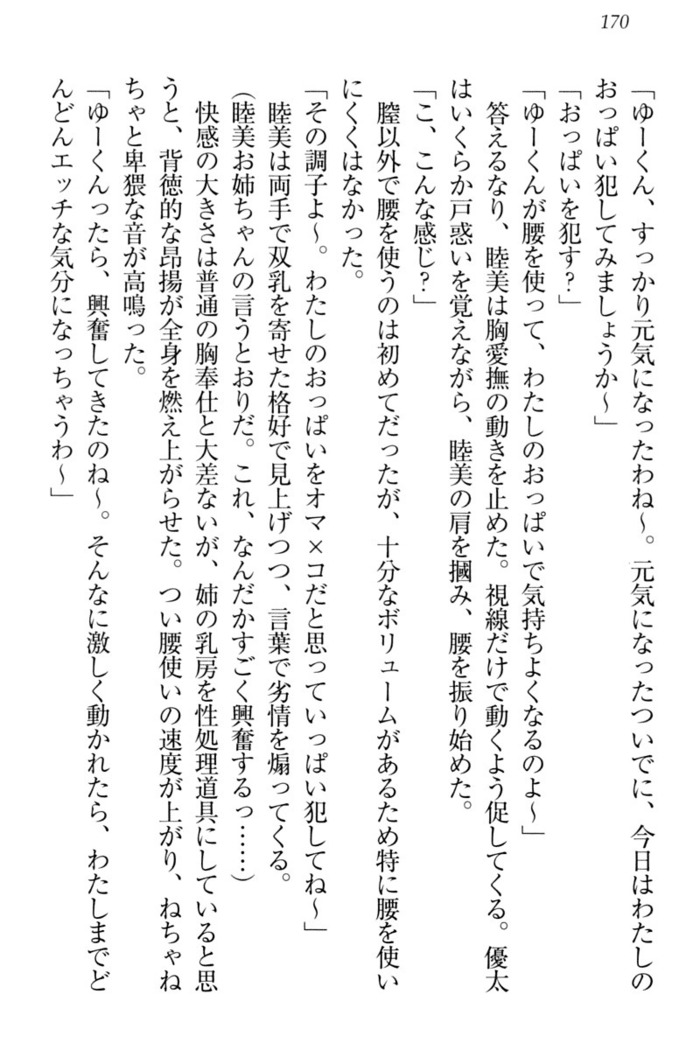 170
「ゆーくん、すっかり元気になったわね～。元気になったついでに、今日はわたしの
おっぱい犯してみましょうか～」
「おっぱいを犯す？」
「ゆーくんが腰を使って、わたしのおっぱいで気持ちよくなるのよ～」
答えるなり、睦美は胸愛撫の動きを止めた。視線だけで動くよう促してくる。優太
はいくらか戸惑いを覚えながら、睦美の肩を摑み、腰を振り始めた。
「こ、こんな感じ？」
膣以外で腰を使うのは初めてだったが、十分なボリュームがあるため特に腰を使い
にくくはなかった。
「その調子よ～。わたしのおっぱいをオマ×コだと思っていっぱい犯してね～」
睦美は両手で双乳を寄せた格好で見上げつつ、言葉で劣情を煽ってくる。
（睦美お姉ちゃんの言うとおりだ。これ、なんだかすごく興奮するっ……）
快感の大きさは普通の胸奉仕と大差ないが、姉の乳房を性処理道具にしていると思
うと、背徳的な昂揚が全身を燃え上がらせた。つい腰使いの速度が上がり、ねちゃね
ちゃと卑猥な音が高鳴った。
「ゆーくんったら、興奮してきたのね～。そんなに激しく動かれたら、わたしまでど
んどんエッチな気分になっちゃうわ～」